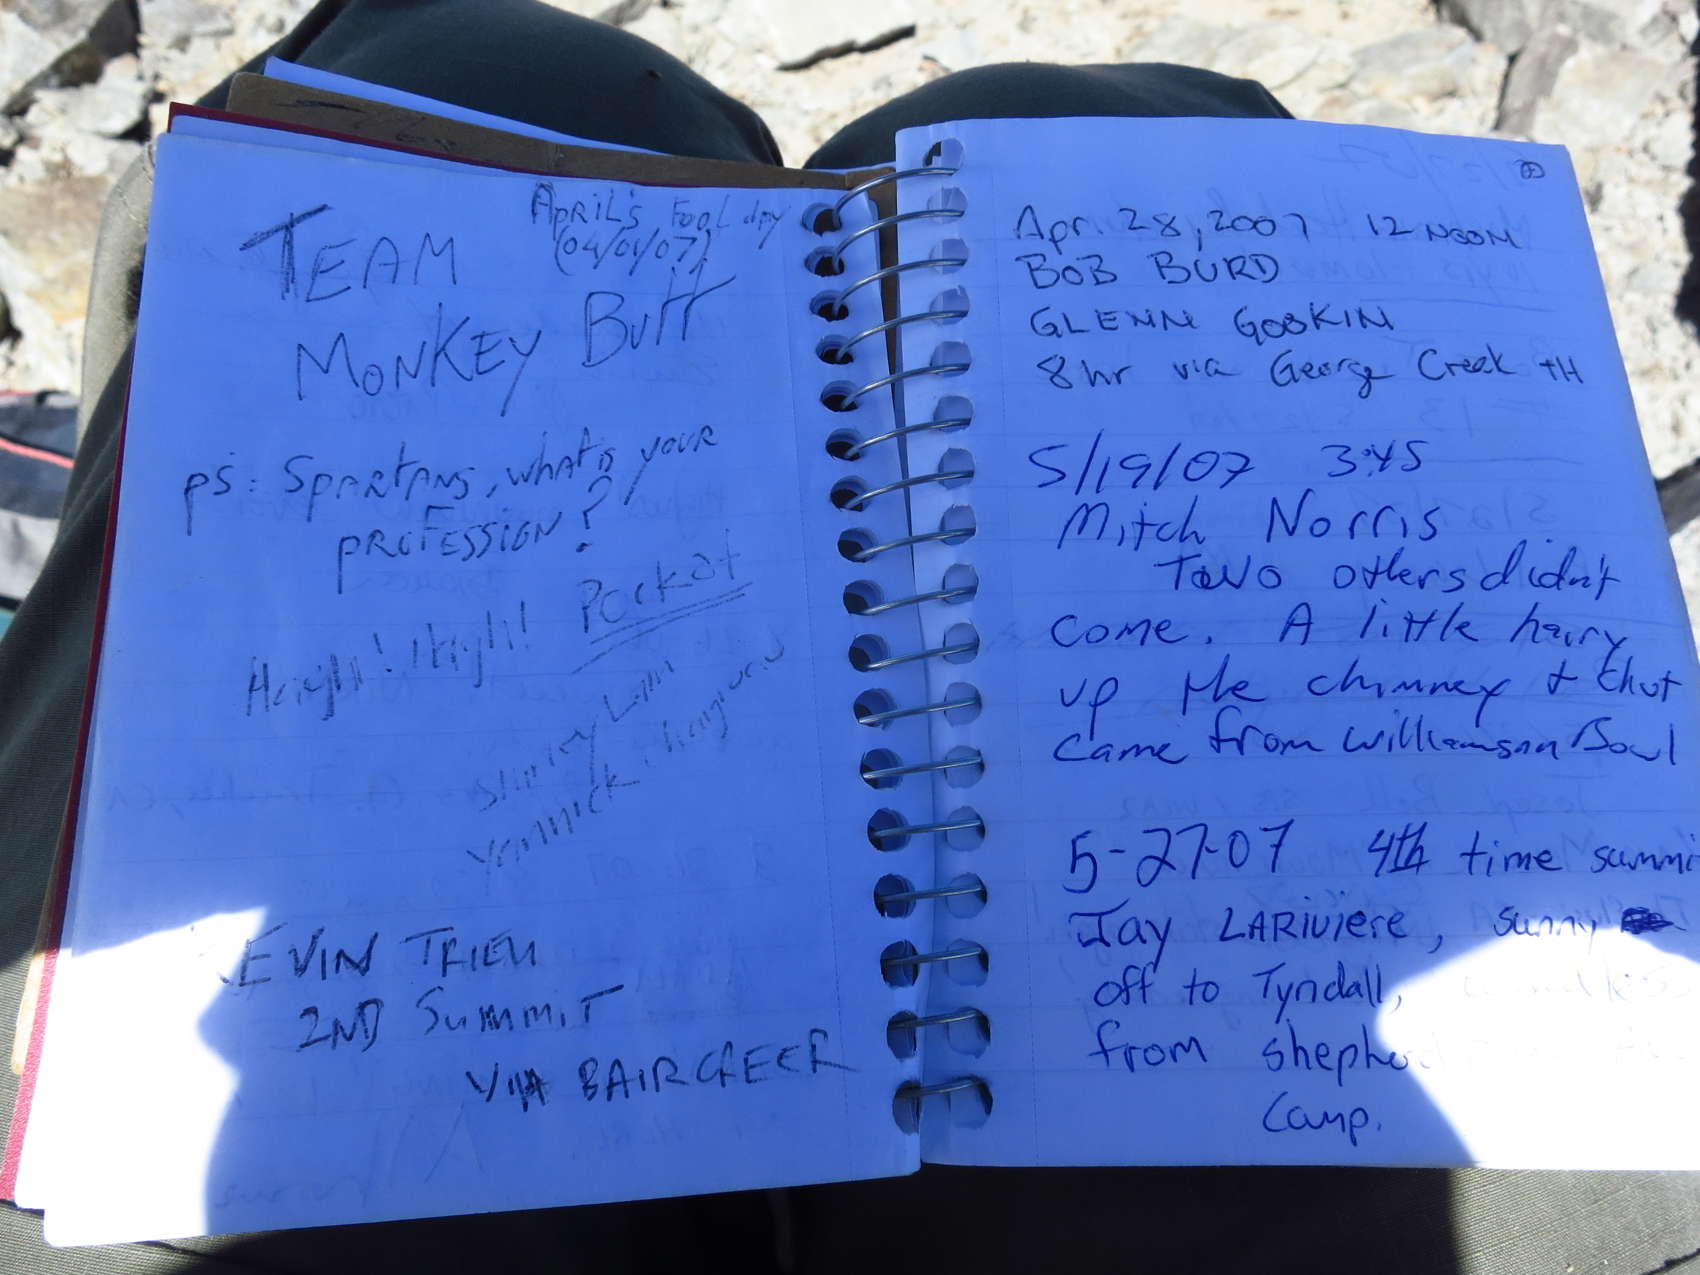 APRIL'S FOOL day
(04/01/07)
TEAM
MONKEY Butt
PS: SPARTANS, what is YOUR
PROFESSION?
Haigh! Haigh!
Pockat
Yannick
KEVIN TRIEU
2ND SUMMIT
VIA BAIRCREEK
Apr. 28, 2007 12 NOON
BOB BURD
GLENN GOOKIN
8hr via George Creek TH
5/19/07 3:45
Mitch Norris
Two others didn't
come. A little hairy
up the chimney & chut
came from Williamson Bowl
5-27-07 4th time summi
Jay LARIVIERE, sunny
off to Tyndall,
from shepherd
Camp.